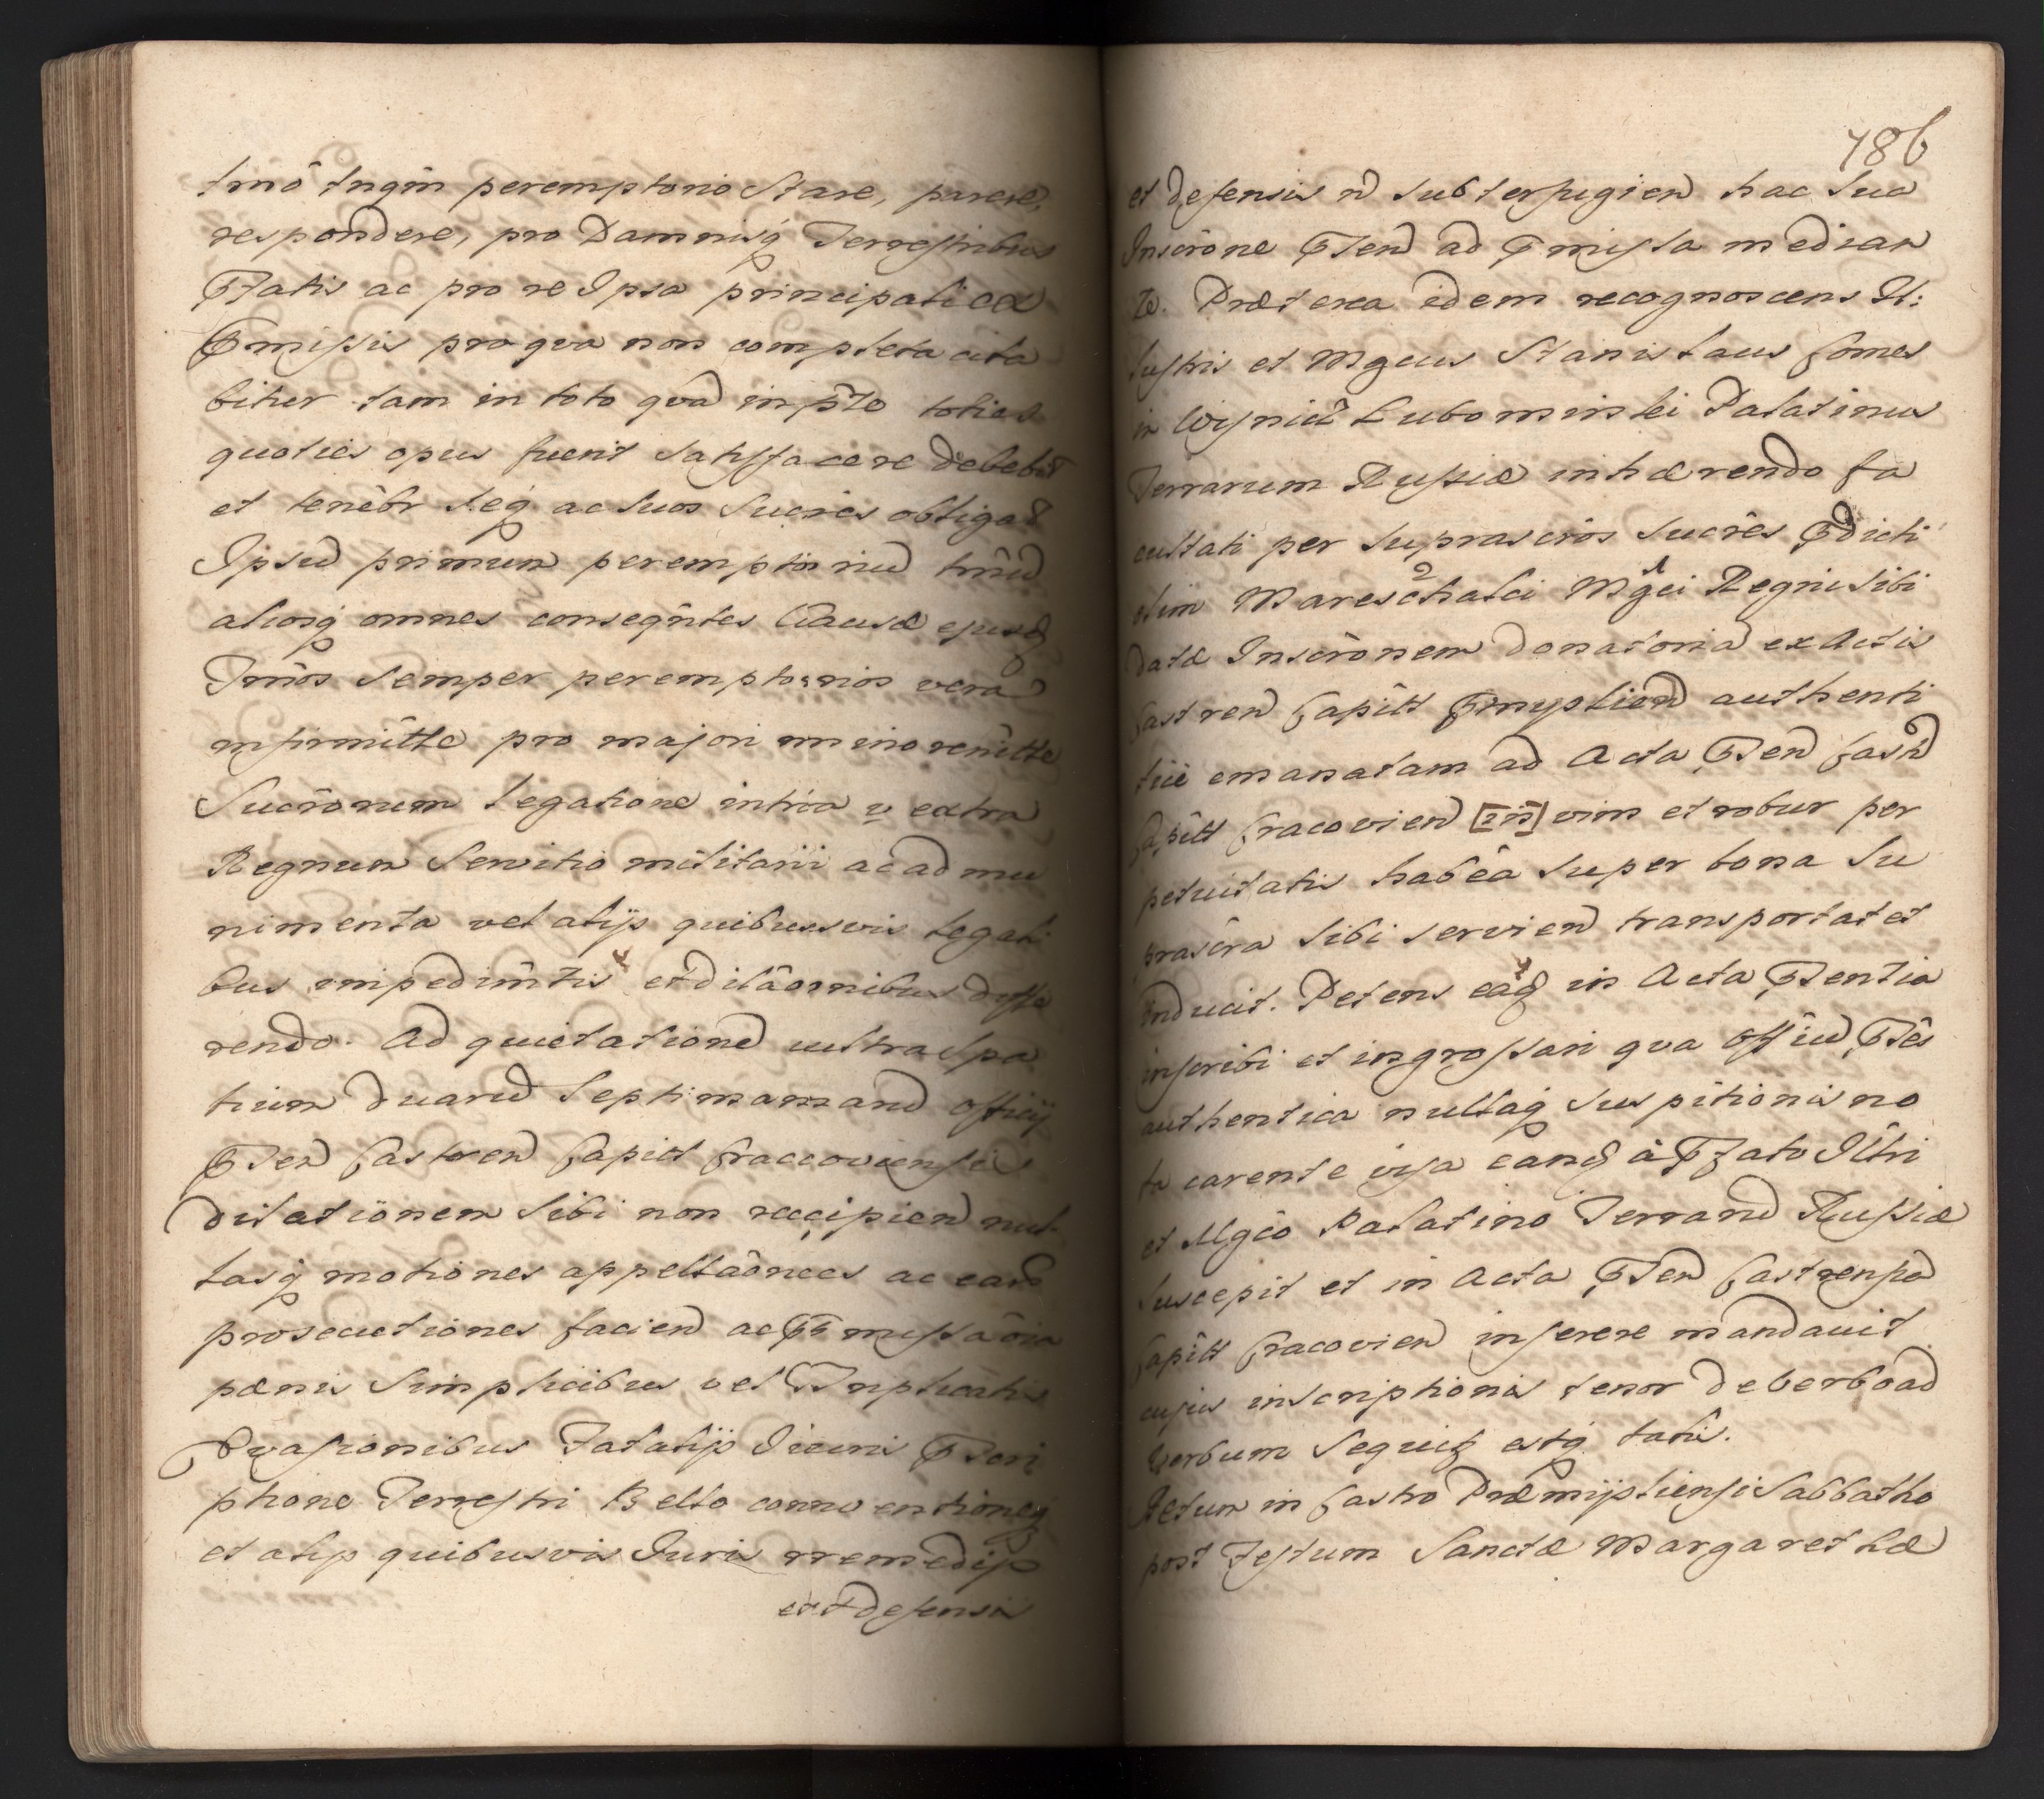 tmô tngm peremptorio Stare, parere,
respondere, pro Damnisq Terrestribus
Pfatis ac pro re Ipsa principali ex
Pmissis pro qua non completa cita
biter tam in toto qvã in pte toties
quoties opus fuerit satisfacere debebit
et tenebr seq ac suos Sucres obligat
Ipsũ primum peremptoriũ tmũ
aliosq omnes conseqntes Causæ ejusq
Tmos semper peremptorios vera
infirmitte pro majori minorenitte
Sucrorum Legatione intra v extra
Regnum Servitio militarii ac ad mu
nimenta vel alijs quibusvis legali
bus impedimtis et dilâonibus diffe
rendo. Ad quietationẽ ultra spa
tium duarũ Septimanarũ officij
Pteñ Castreñ Capitt Craccoviensis
ditationem sibi non recipieñ nul-
lasq motiones appellâones ac earũ
prosecutiones facieñ ac Pmissa oia
pœnis Simplicibus vel Triplicatis
Evasionibus Fatalijs Iieuni Pscri
ptione Terrestri Bello conventioneq
et alijs quibusvis Iuris remedijs
et defensis
786
et defensis ñ subterfugieñ hac sua
Inscrône Pteñ ad Pmissa median
te. Præterea idem recognoscens Il:
lustris et Mgcus Stanislaus Comes
in Wisnicz Lubomirski Palatinus
Terrarum Russiæ inhærendo fa
cultati per suprascrôs Sucrês Pdicti
olim Mareschalci Mgci Regni sibi
datæ Inscrônem donatoriã ex Actis
Castreñ Capitt Pmyslieñ authenti
tiè emanatam ad Acta Pteñ Castñ
Capitt Cracovieñ [in] vim et robur per
petuitatis habêa super bona Su
prascra sibi servieñ transportat et
inducit. Petens eaq in Acta Psentia
inscribi et ingrossari qva Offiũ Ptês
authentica nullaq suspitionis no
ta carente visa eanq à Pfato Illri
et Mgco Palatino Terrarũ Russiæ
suscepit et in Acta Pteñ Castrensia
Capitt Cracovieñ inserere mandavit
cujus inscriptionis tenor de verbo ad
verbum sequitr estq talis.
Actum in Castro Præmijsliensi Sabbatho
post Festum Sanctæ Margarethæ